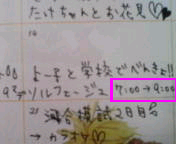 たけちゃんとお花見♡
14
よー子と学校でべんきょ!!
ソルフェージュ 7:00→9:00
21 河合模試2日目
→カラオケ♡